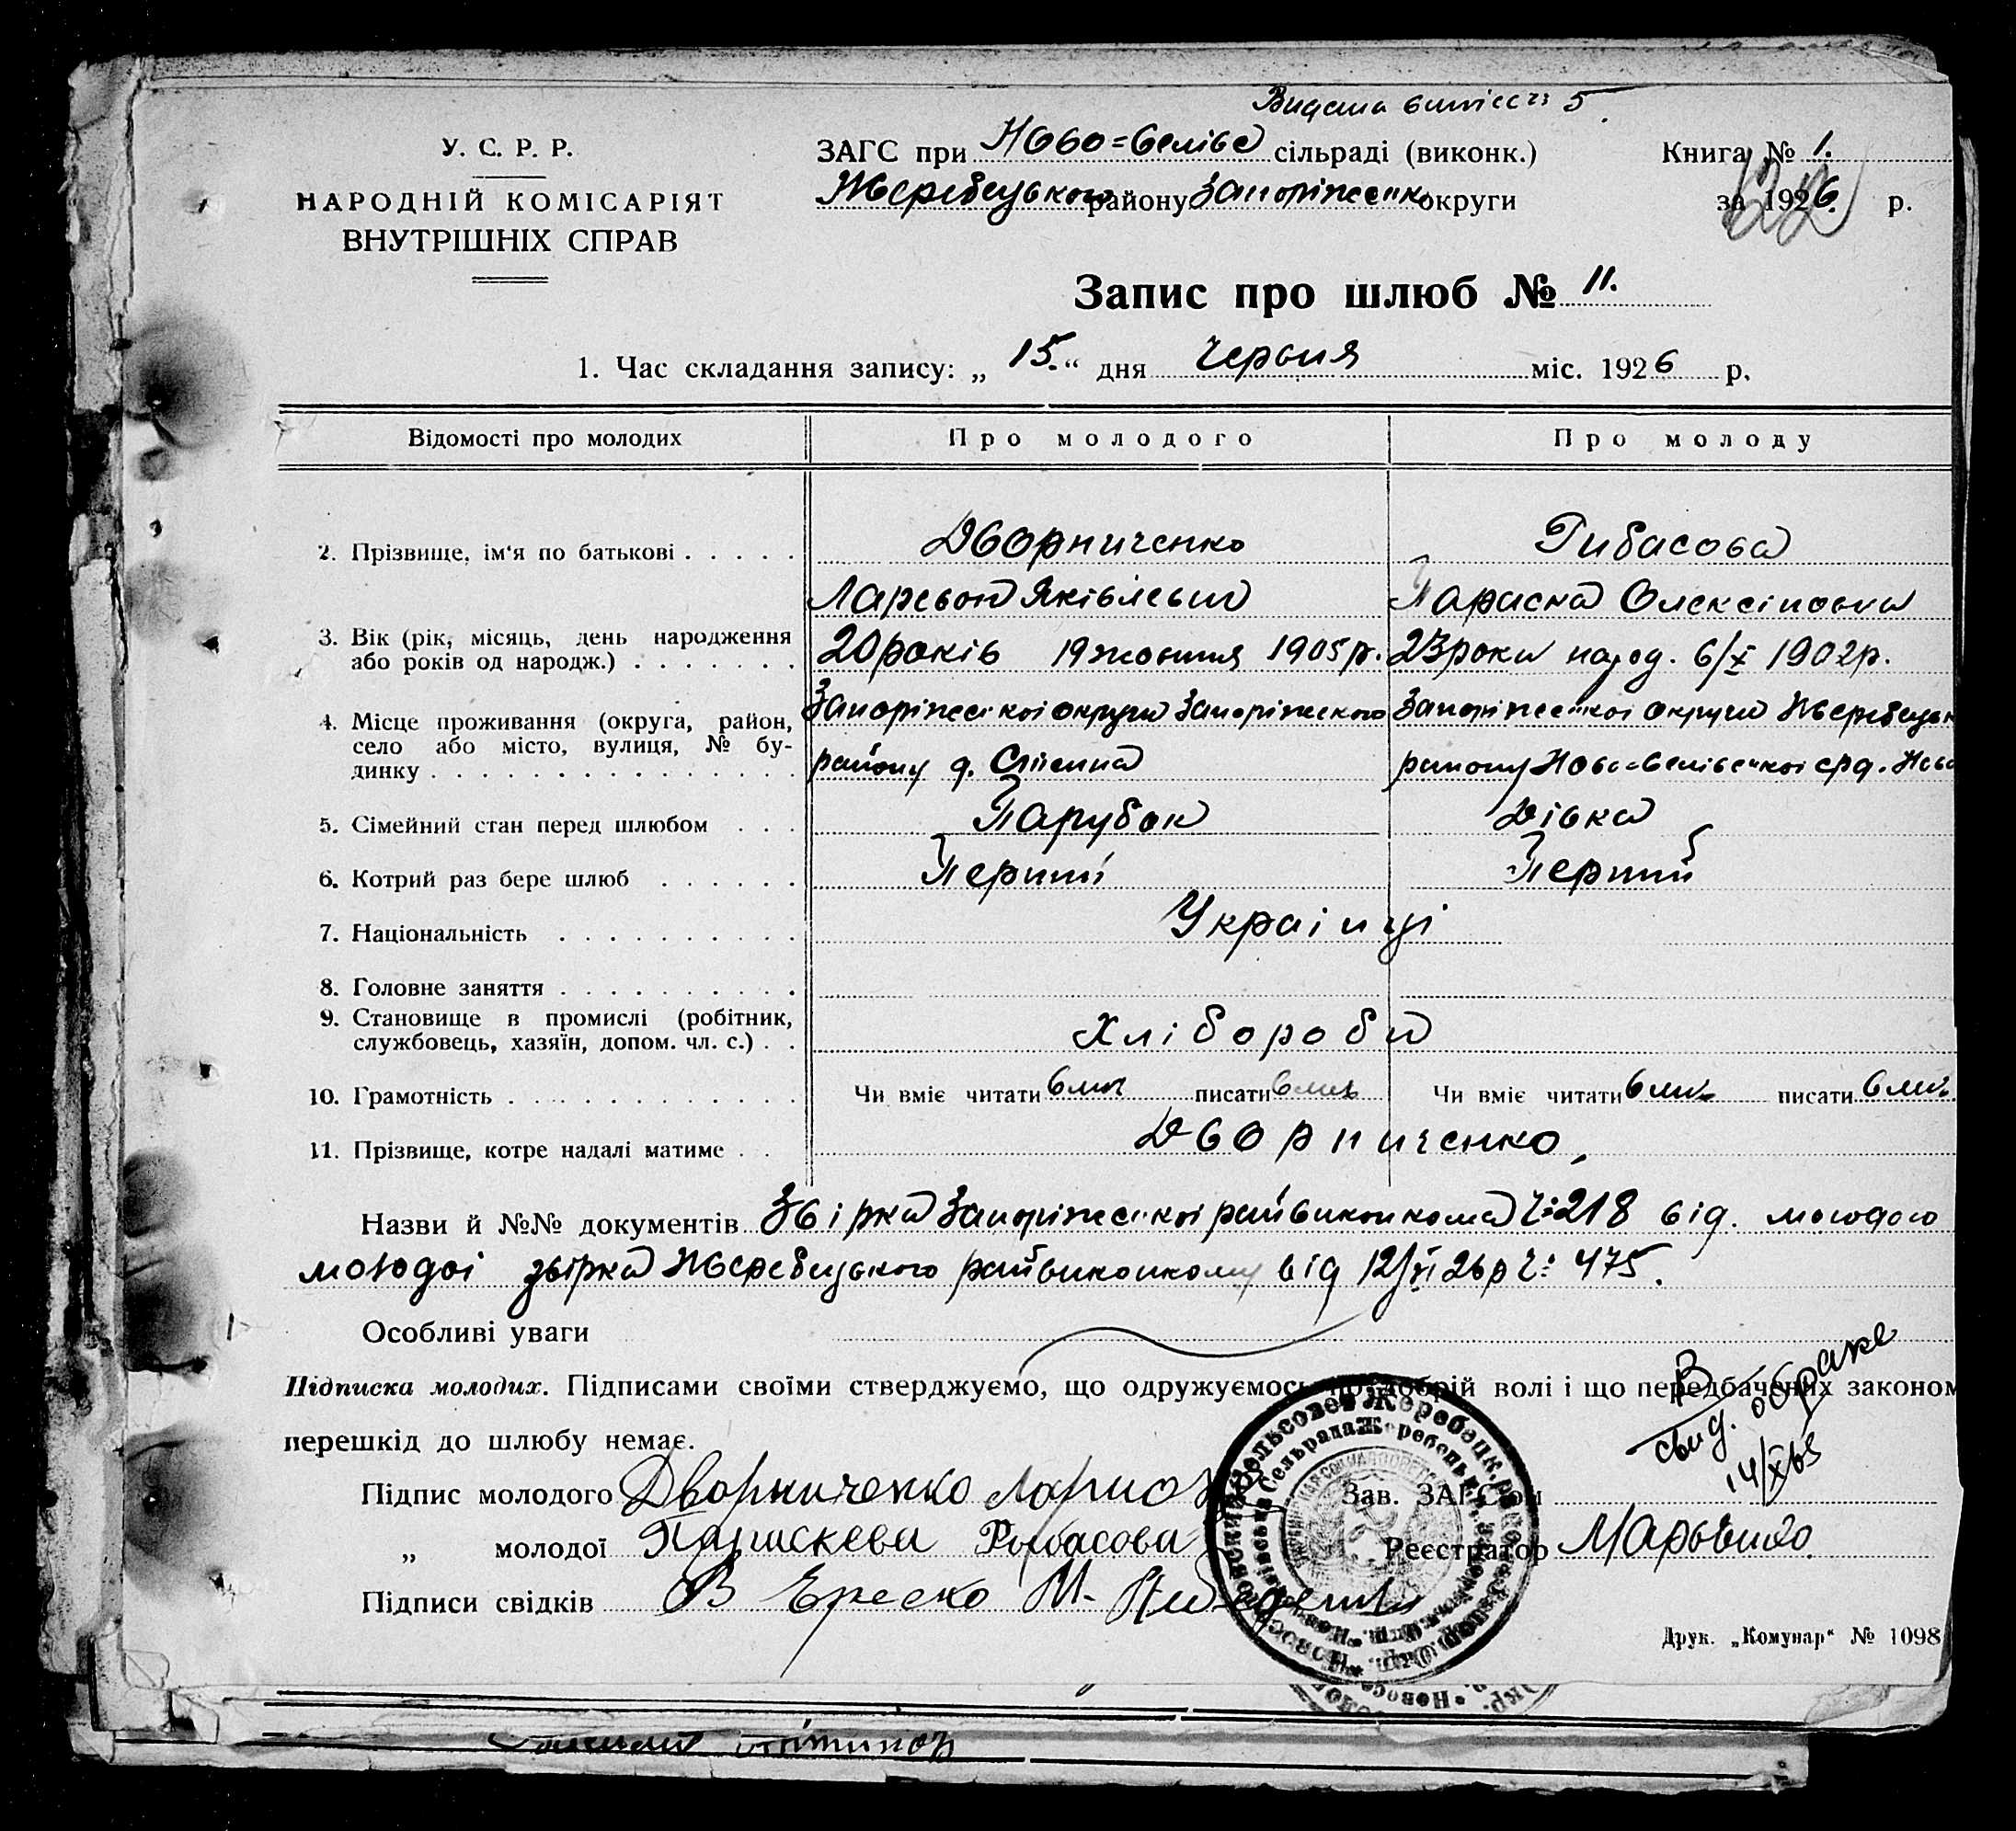 Видана
У. С. Р. Р.
НАРОДНІЙ КОМІСАРІЯТ
ВНУТРІШНІХ СПРАВ
ЗАГС при сільраді (виконк.)
Жеребецького району Запоріжськ округи
Книга № 1.
за 1926. р.
Запис про шлюб № 11.
1. Час складання запису: „ 15. “ дня Червня міс. 1926 р.
Відомості про молодих Про молодого Про молоду
2. Прізвище, ім‘я по батькові . . . . . Дворниченко Рибасова
Ларевон Яківлевич Параска Олексіївна
3. Вік (рік, місяць, день народження
або років од народж.) . . . . . . . 20 років 19 жовтня 1905 р. 23 роки народ. 6/X 1902 р.
4. Місце проживання (округа, район,
село або місто, вулиця, № бу-
динку . . . . . . . . . . . . . . .
Запоріжської округи Запоріжського Запоріжської округи Жеребецьк
району району срд. Ново
5. Сімейний стан перед шлюбом . . . Парубок Дівка
6. Котрий раз бере шлюб . . . . . . Перший Перший
7. Національність . . . . . . . . . . Українці
8. Головне заняття . . . . . . . . . .
9. Становище в промислі (робітник,
службовець, хазяїн, допом. чл. с.) . . Хлібороби
10. Грамотність . . . . . . . . . . . . Чи вміє читати вміє писати вміє Чи вміє читати вміє писати вміє
11. Прізвище, котре надалі матиме . . Дворниченко,
Назви й №№ документів Звірка Запоріжської райвиконкома Ч: 218 від. молодого
молодої звірка Жеребецького райвиконкому від 12/VI 26 р Ч: 475.
Особливі уваги
Підписка молодих. Підписами своїми стверджуємо, що одружуємось по добрій волі і що передбачених законом
перешкід до шлюбу немає.
В
свид. о браке
14/X 65
Підпис молодого Дворниченко Ларион Зав. ЗАГС'ом
„ молодої Параскева Рыбасова Реєстратор
Підписи свідків В Ереско М.
Друк. „Комунар“ № 1098